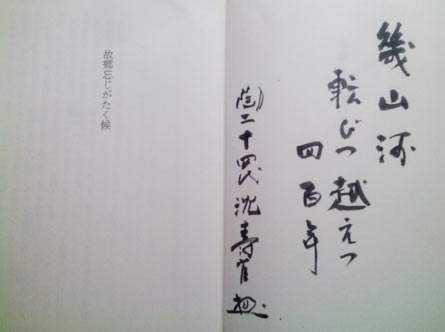 幾山河
転びつ越えつ
四百年
陶工十四代沈壽官
故郷忘じがたく候